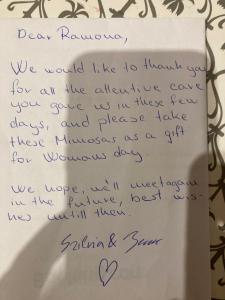 Dear Ramona,
We would like to thank you
for all the attentive care
you gave us in these few
days, and please take
these Mimosas as a gift
for Womans day.
We hope, we'll meet again
in the future, best wis-
hes untill then.
Szilvia &